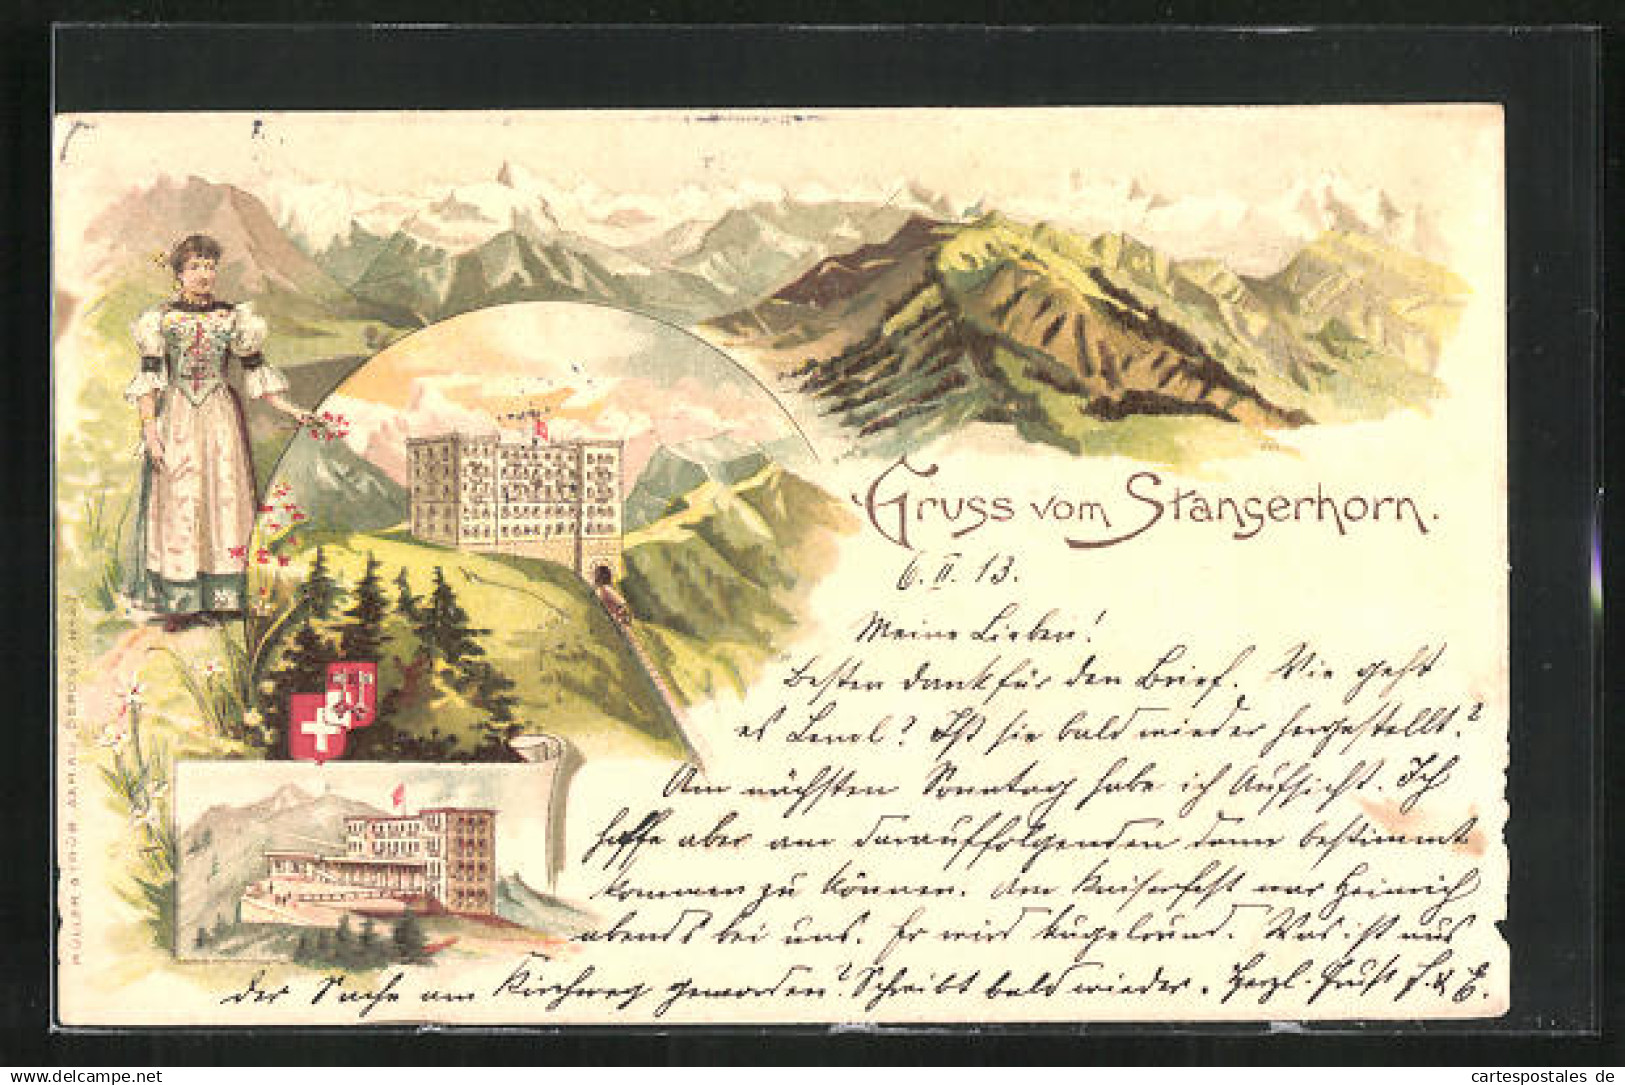 Gruss vom Stanserhorn.
6. II. 13.
Meine Lieben!
Besten Dank für den Brief. Wie geht
es Lenol? Ist sie bald wieder hergestellt?
Am nächsten Sonntag habe ich Aufsicht. Ich
hoffe aber am darauffolgenden dann bestimmt
kommen zu können. Am Kaiserfest war Heinrich
abends bei uns. Er wird kugelrund. Was ist aus
der Sache am Kirchweg geworden? Schreibt bald wieder. Herzl. Gruß E. & E.
MÜLLER & TRÜB AARAU
cartespostales.de